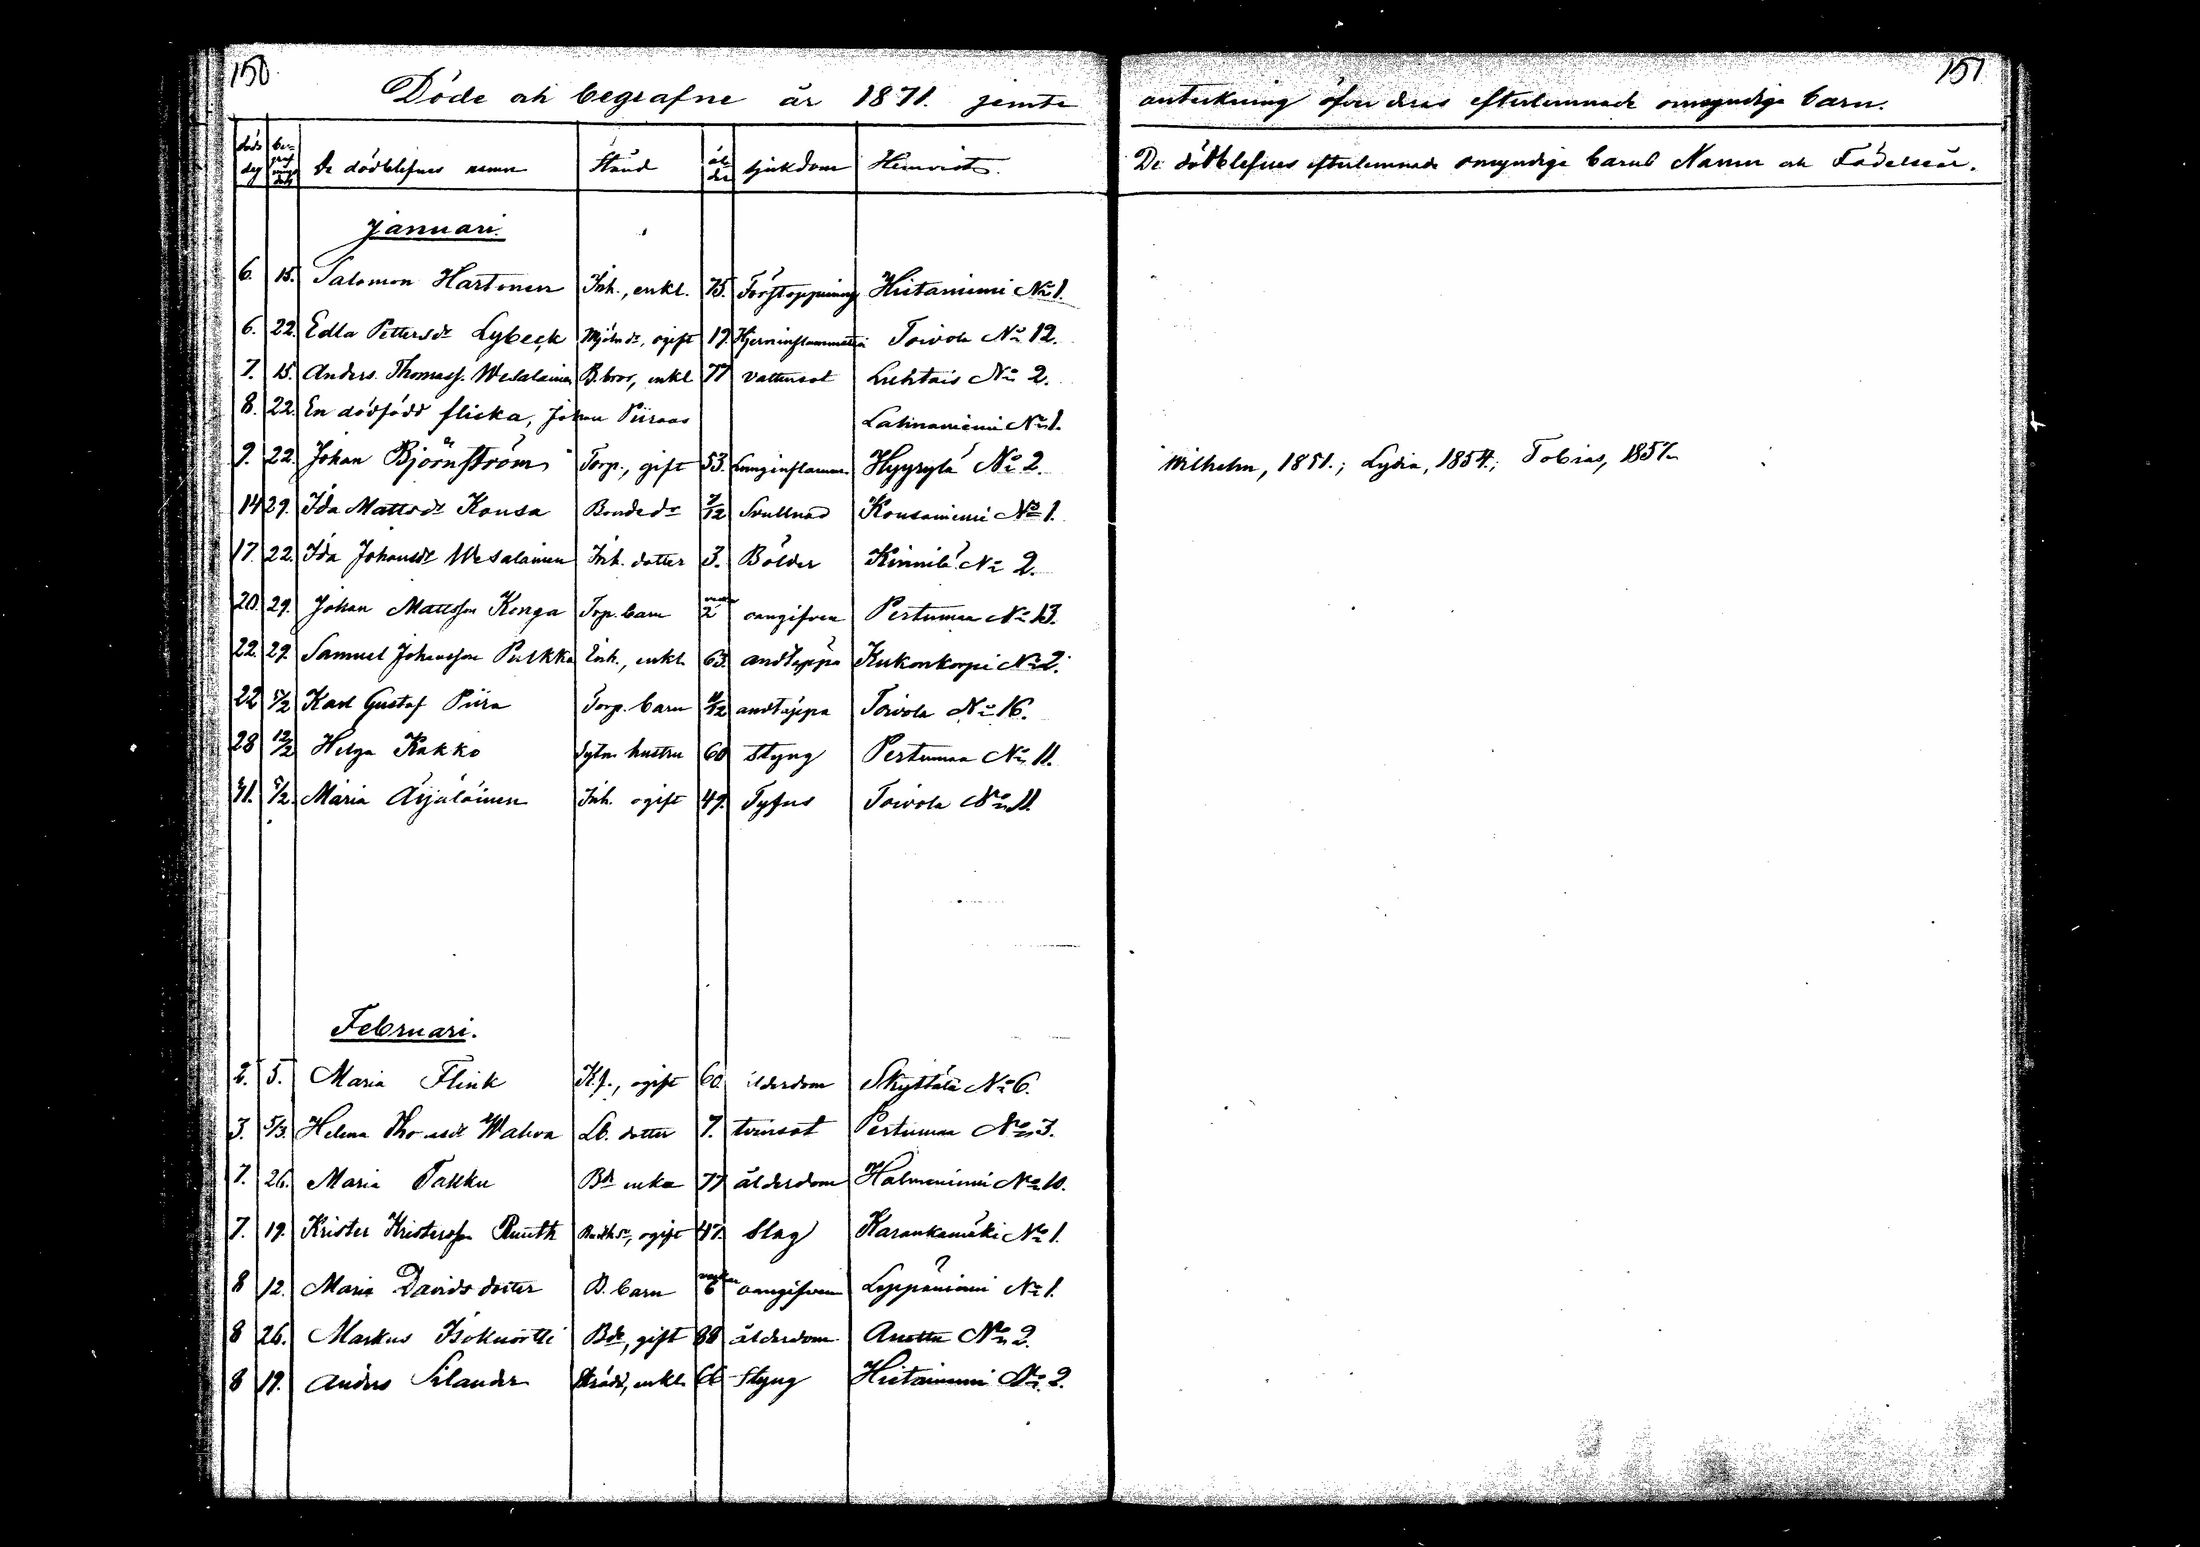 150.
Döde och begrafne år 1871. jemte
döds dag | begrafnings dag | De dödblefnes namn | Stånd | ålder | sjukdom | Hemvist.
Januari.
6. 15. Salomon Hartonen Inh., enkl. 75. Förstoppning Hietaniemi No 1.
6. 22. Edla Pettersdr Lybeck Mjöln dr, ogift 19. Hjerninflammation Toivola No 12.
7. 15. Anders Thomass. Wesalainen B. bror, enkl 77 vattusot Luhtais No 2.
8. 22. En dödfödd flicka, Johan Piiraas Lahnaniemi No 1.
9. 22. Johan Björnström Torp., gift 53. Lunginflamm. Hyyrylä No 2.
14 29. Ida Mattsdr Kousa Bondedr 7/12 Svullnad Kousaniemi No 1.
17. 22. Ida Johansdr Wesalainen Inh. dotter 3. Bölder Kinnilä No 2.
20. 29. Johan Mattsson Konga Torp. barn 2 oangifven Pertumaa No 13.
22. 29. Samuel Johansson Pulkka Inh., enkl. 63. andtäppa Kukonkorpi No 2.
22 5/2 Karl Gustaf Piira Torp. barn andtäppa Toivola No 16.
28 12/2 Helga Kakko Sytn. hustru 60 styng Pertumaa No 11.
31. 5/2. Maria Äijäläinen Inh. ogift 49. Tyfus Toivola No 11.
Februari.
2. 5. Maria Flink K.f., ogift 60. ålderdom Skyttälä No 6.
3. 5/3. Helena Thomasdr Wahva Lb. dotter 7. tvinsot Pertumaa No 3.
7. 26. Maria Takku Bdr enka 77 ålderdom Halmeniemi No 10.
7. 19. Krister Kristersson Ruuth ogift 47. Slag Karankamäki No 1.
8 12. Maria Davids dotter B. barn 6 veckor oangifven Leppäniemi No 1.
8 26. Markus Isokuortti Bde, gift 88 ålderdom Anettu No 2.
8 19. Anders Silander enkl. 66 Styng Hietaniemi No 2.
151
anteckning öfver deras efterlemnade omyndige barn.
De dödblefnes efterlemnade omyndige barns Namn och Födelseår.
Wilhelm, 1851.; Lydia, 1854.; Tobias, 1857.